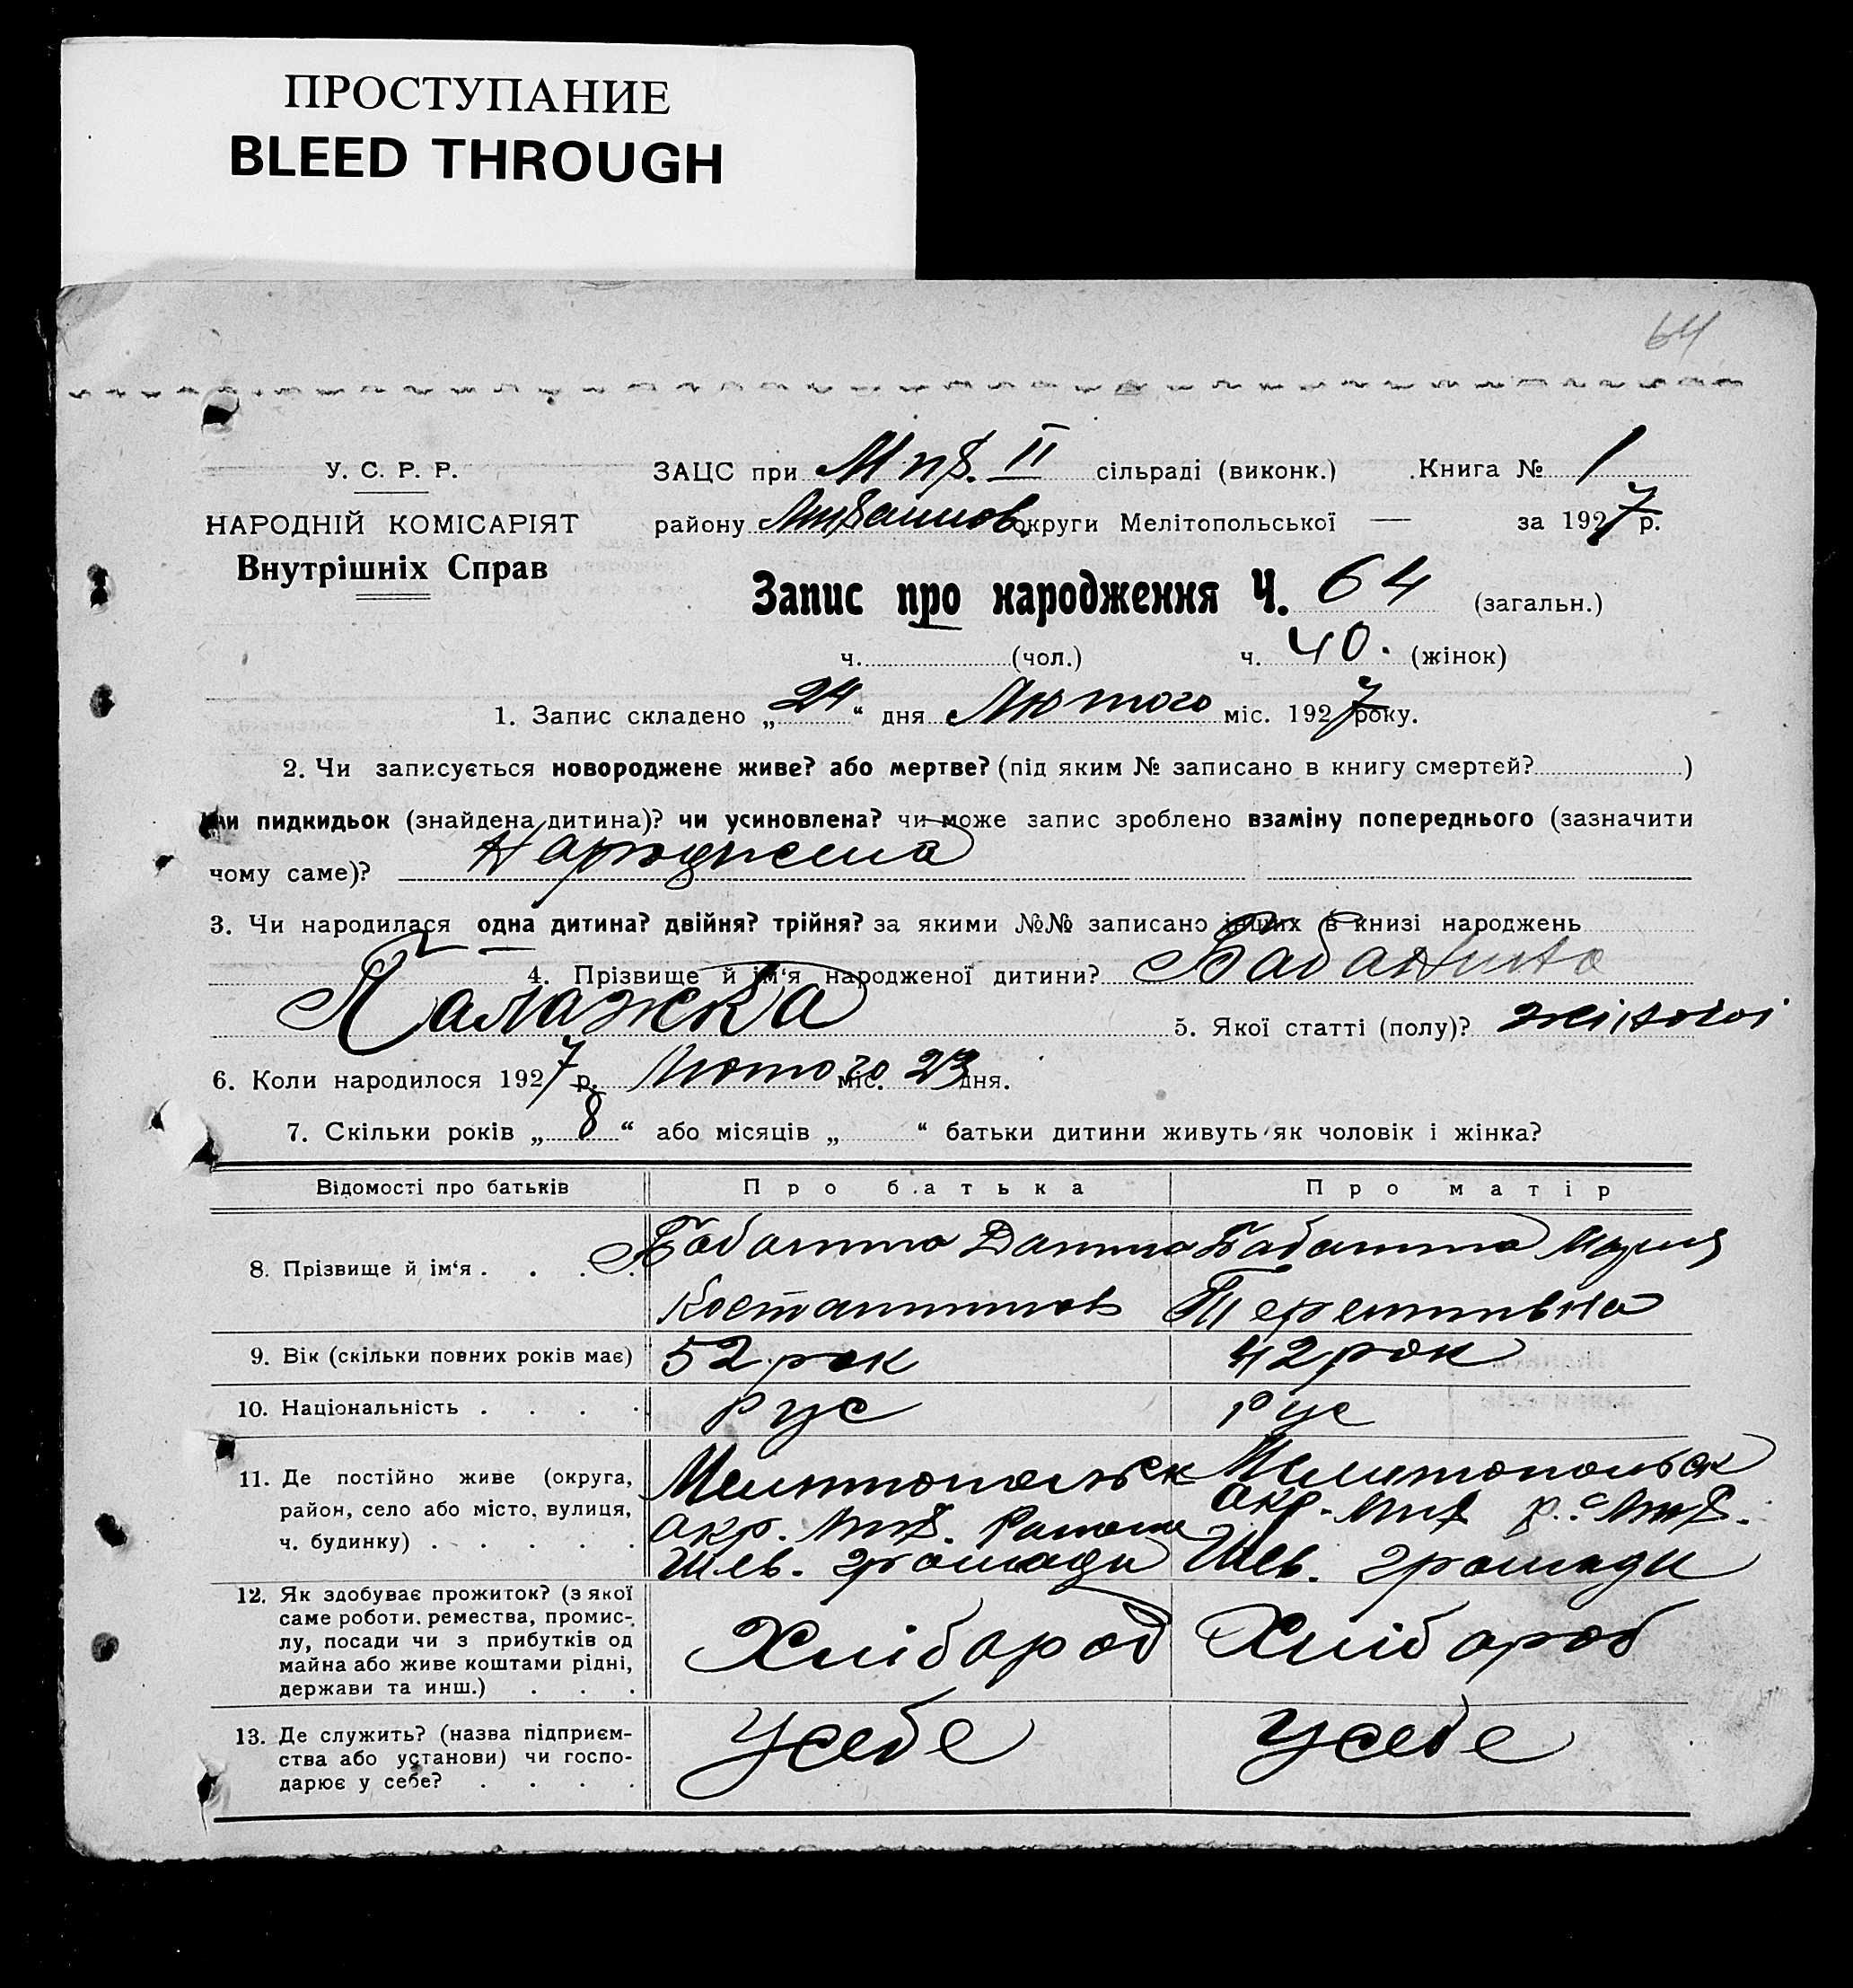 ПРОСТУПАНИЕ
BLEED THROUGH
64
У. С. Р. Р.
НАРОДНІЙ КОМІСАРІЯТ
Внутрішніх Справ
ЗАЦС при II сільраді (виконк.) Книга № 1
району округи Мелітопольської — за 1927 р.
Запис про народження Ч. 64 (загальн.)
ч. (чол.) ч. 40. (жінок)
1. Запис складено „ 24 “ дня Лютого міс. 1927 року.
2. Чи записується новороджене живе? або мертве? (під яким № записано в книгу смертей? )
чи пидкидьок (знайдена дитина)? чи усиновлена? чи може запис зроблено взаміну попереднього (зазначити
чому саме)? Народжена
3. Чи народилася одна дитина? двійня? трійня? за якими №№ записано інших в книзі народжень
4. Прізвище й ім‘я народженої дитини?
Палажка 5. Якої статті (полу)? жіночої
6. Коли народилося 1927 р. Лютого міс. 23 дня.
7. Скільки років „ 8 “ або місяців „ “ батьки дитини живуть як чоловік і жінка?
Відомості про батьків Про батька Про матір
8. Прізвище й ім‘я . . . .
9. Вік (скільки повних років має) 52 рок 42 рок
10. Національність . . . . Рус Рус
11. Де постійно живе (округа,
район, село або місто, вулиця,
ч. будинку) . . . . .
Мелитопольск Мелитопольск
окр. окр.
громади громади
12. Як здобуває прожиток? (з якої
саме роботи, ремества, промис-
лу, посади чи з прибутків од
майна або живе коштами рідні,
держави та инш.) . . .
Хлібороб Хлібороб
13. Де служить? (назва підприєм-
ства або установи) чи госпо-
дарює у себе? . . . .
Усебе Усебе